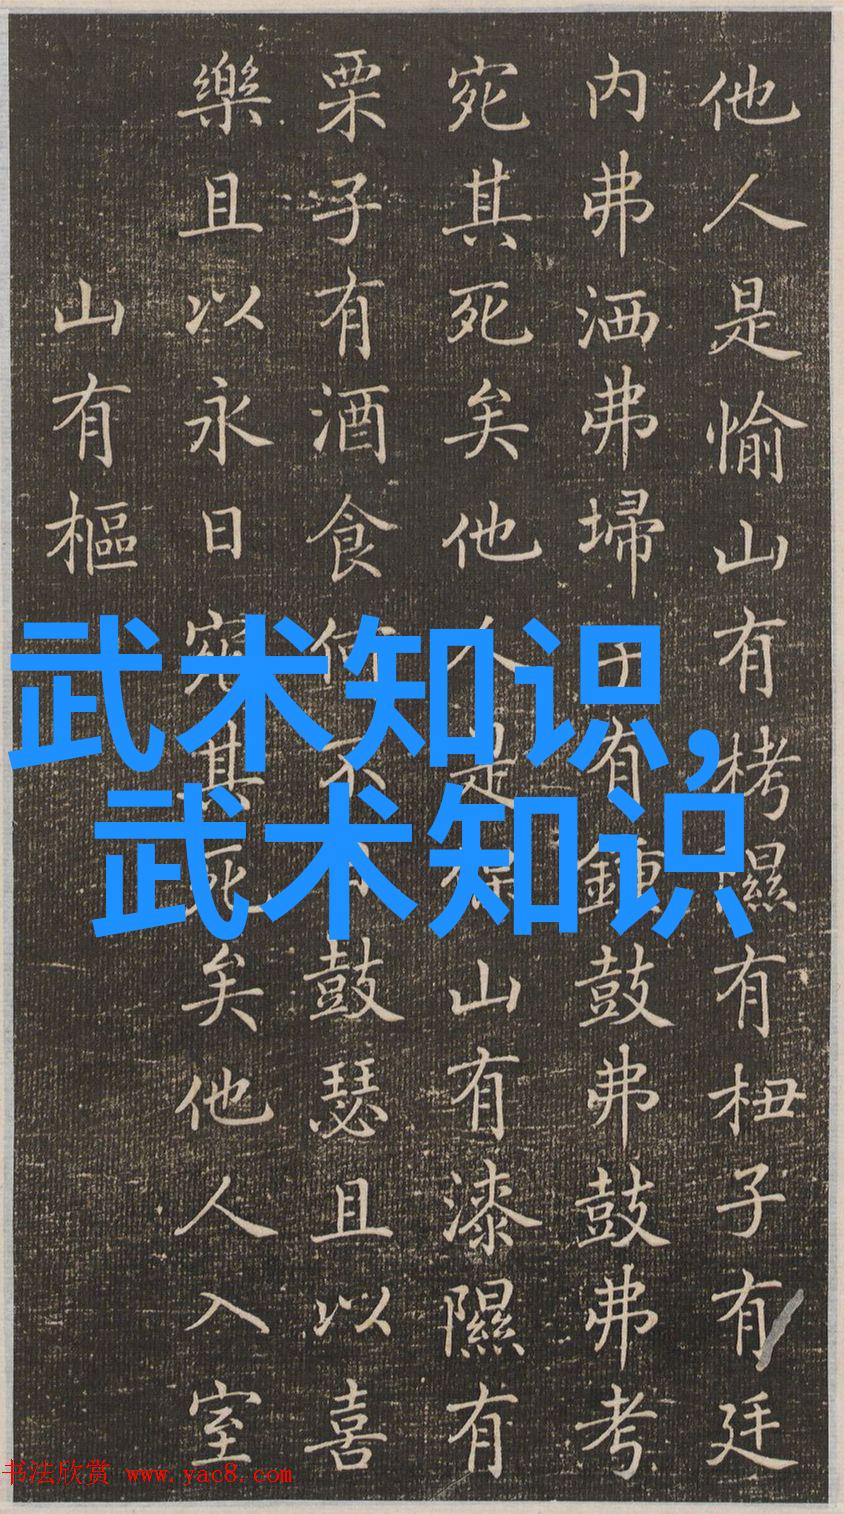 他人是愉山有栲隰有杻子有廷
内弗洒弗埽子有鍾鼓弗鼓弗考
宛其死矣他人是保山有漆隰有
栗子有酒食何不鼓瑟且以喜
樂且以永日宛其死矣他人入室
山有樞
武术知识,
武术知识
书法欣赏 www.yac8.com